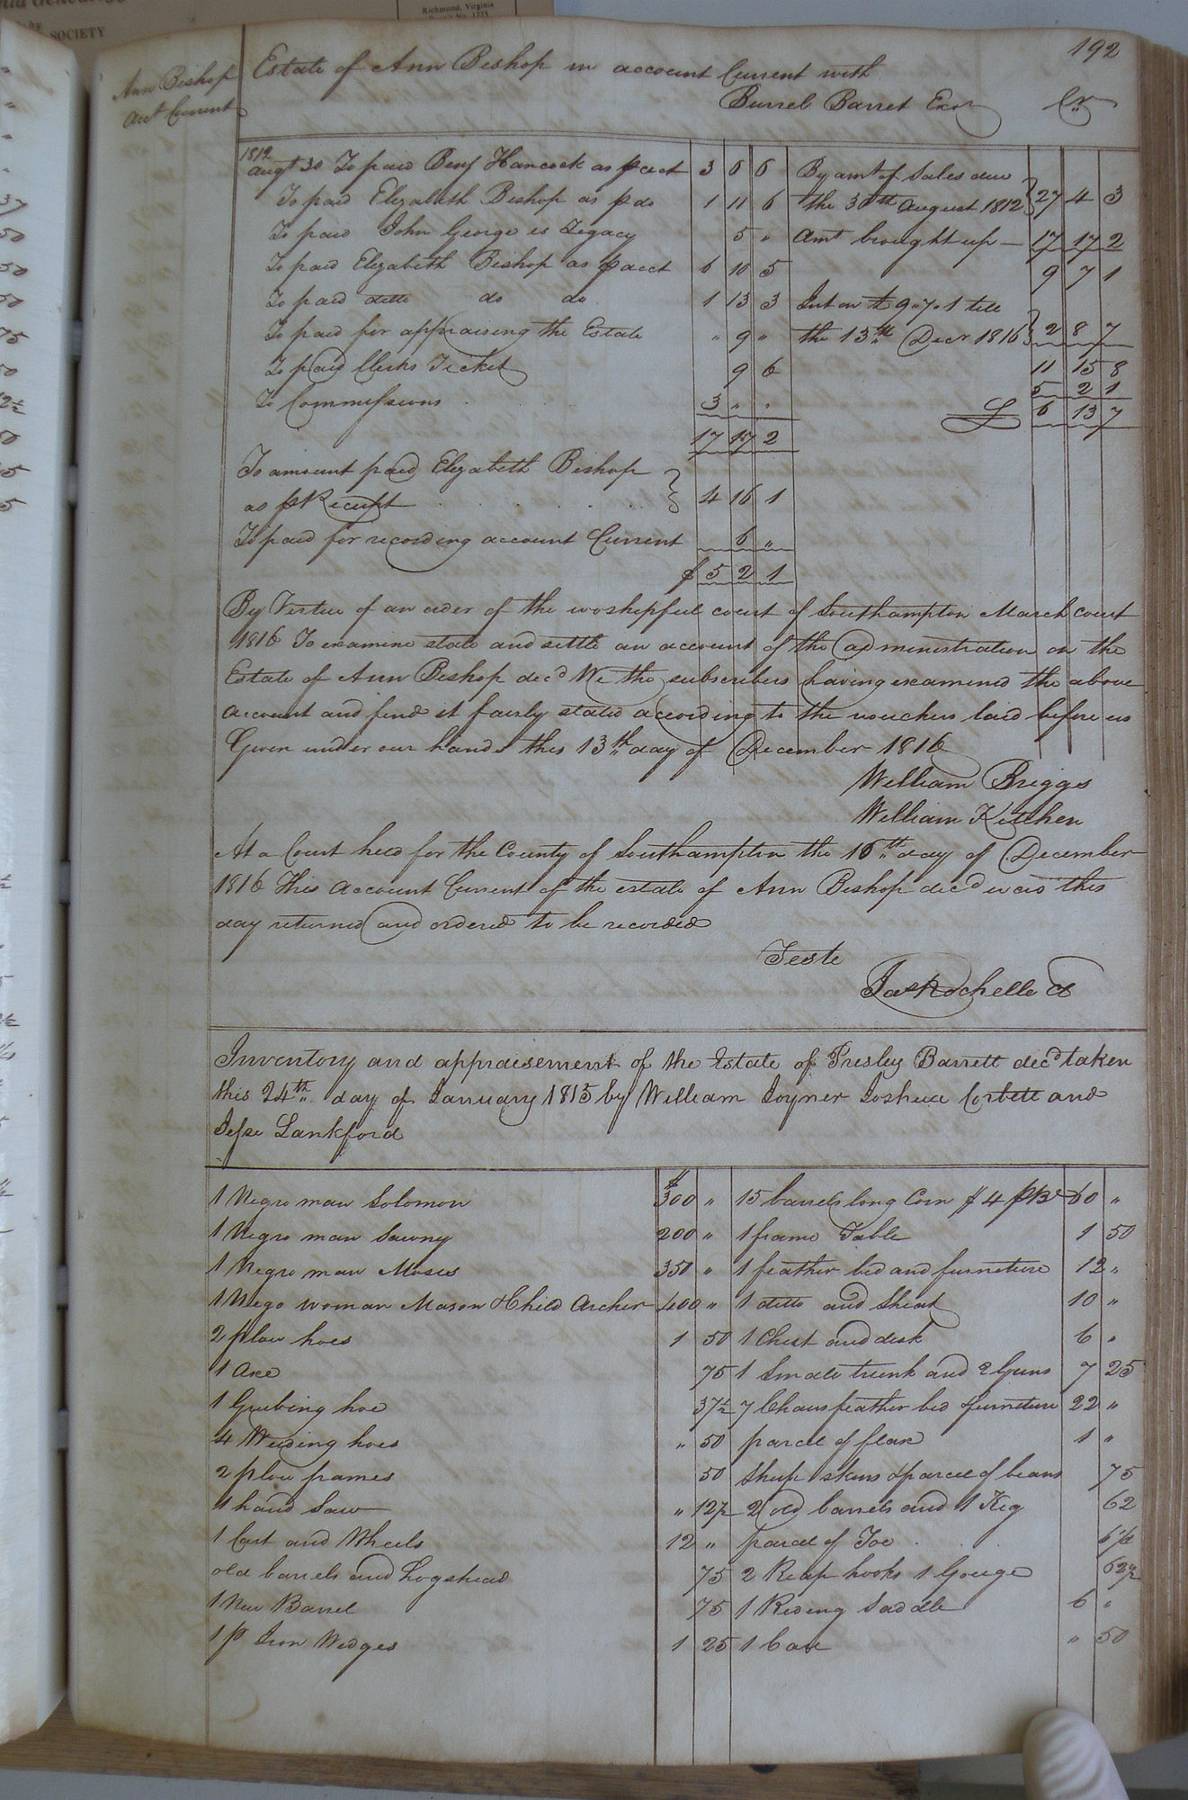 SOCIETY
Richmond, Virginia
192
Ann Bishop
Act Current
Estate of Ann Bishop in account Current with
Burrel Barret Exor Cr
1812
Augt 30 To paid Benj Hancock as p acct 3 6 6
To paid Elizabeth Bishop as p do 1 11 6
To paid John George is Legacy 5 "
To paid Elizabeth Bishop as p acct 6 10 5
To paid ditto do do 1 13 3
To paid for appraising the Estate " 9 "
To paid Clerks Ticket 9 6
To Commissions 3 " "
17 17 2
To amount paid Elizabeth Bishop
as p Receipt 4 16 1
To paid for recording account Current 6 "
£ 5 2 1
By amt of Sales due
the 30th August 1812 27 4 3
Amt brought up — 17 17 2
9 7 1
Int on the 9.7.1 till
the 13th Decr 1816 2 8 7
11 15 8
5 2 1
£ 6 13 7
By Virtue of an order of the worshipful court of Southampton March court
1816 To examine state and settle an account of the administration on the
Estate of Ann Bishop decd We the subscribers having examined the above
account and find it fairly stated according to the vouchers laid before us
Given under our hands this 13th day of December 1816
William Briggs
William Kitchen
At a Court held for the County of Southampton the 16th day of December
1816 This Account Current of the estate of Ann Bishop decd was this
day returned and ordered to be recorded
Teste
Jas Rochelle Cl
Inventory and appraisement of the Estate of Presley Barrett decd taken
this 24th day of January 1815 by William Joyner Joshua Corbett and
Jesse Lankford
1 Negro man Solomon $ 300 "
1 Negro man Sawny 200 "
1 Negro man Moses 350 "
1 Nego woman Mason & Child Archer 400 "
2 plow hoes 1 50
1 Axe 75
1 Grubing hoe 37½
4 Weeding hoes " 50
2 plow frames 50
1 hand Saw " 12½
1 Cart and Wheels 12 "
old barrels and hogshead 75
1 New Barrel 75
1 pr Iron Wedges 1 25
15 barrels long Corn $ 4 p Br 60 "
1 frame Table 1 50
1 feather bed and furneture 12 "
1 ditto and Stead 10 "
1 Chest and desk 6 "
1 Small trunk and 2 Guns 7 25
7 Chairs feather bed & furneture 22 "
parcel of flax 1 "
Sheep skins & parcel of beans 75
2 old barrels and 1 Keg 62
parcel of Toe
2 Reap hooks 1 Gouge 62½
1 Riding Saddle 6 "
1 " 50